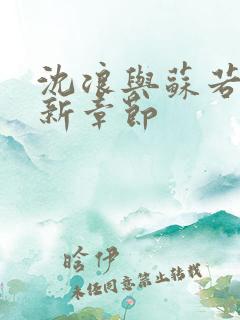 沈浪與蘇若
新章節
晗伊
未经同意禁止转载